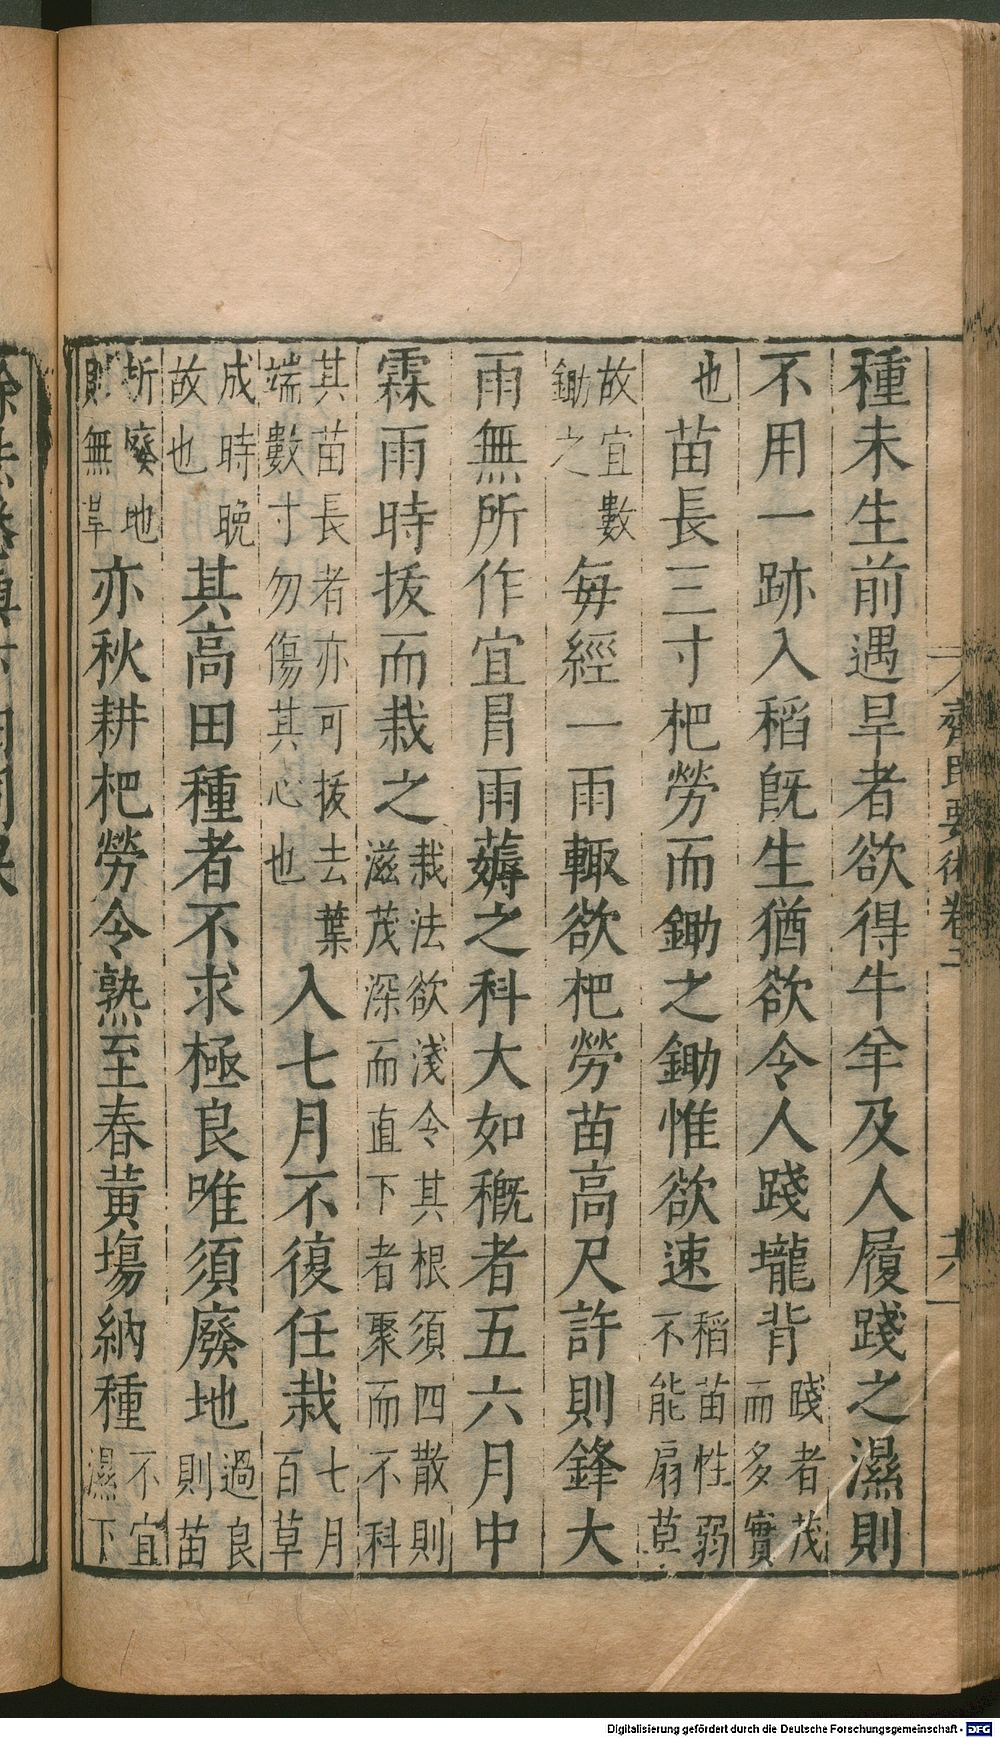 種未生前遇旱者欲得牛羊及人履踐之濕則
不用一跡入稻既生猶欲令人踐壠背踐者茂而多實
也苗長三寸杷勞而鋤之鋤惟欲速稻苗性弱不能扇草
故宜數鋤之每經一雨輙欲杷勞苗高尺許則鋒大
雨無所作宜冐雨薅之科大如穊者五六月中
霖雨時拔而栽之栽法欲淺令其根須四散則滋茂深而直下者聚而不科
其苗長者亦可拔去葉端數寸勿傷其心也入七月不復任栽七月百草
成時晚故也其高田種者不求極良唯須廢地過良則苗
折廢地則無草亦秋耕杷勞令熟至春黃塲納種不宜濕下
齊民要術卷二
十八
Digitalisierung gefördert durch die Deutsche Forschungsgemeinschaft - DFG